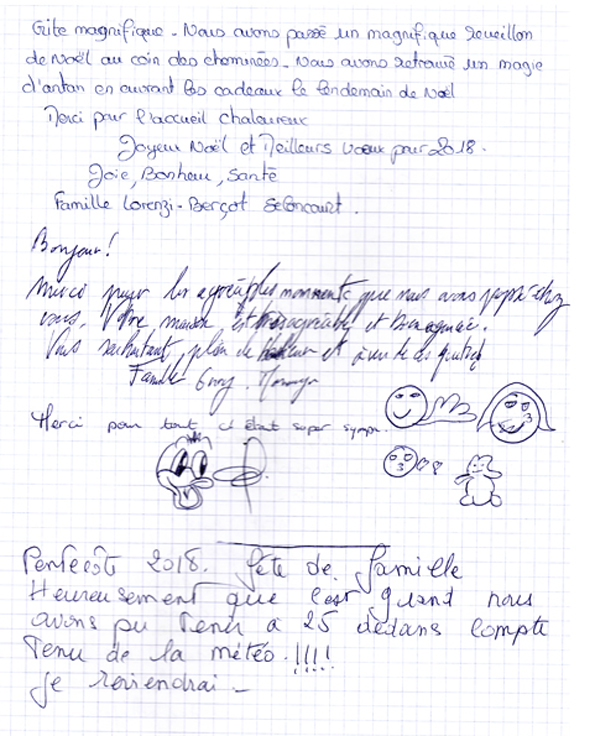 Gite magnifique - Nous avons passé un magnifique reveillon
de Noël au coin des cheminées - Nous avons retrouvé un magie
d'antan en ouvrant les cadeaux le lendemain de Noël
Merci pour l'accueil chaleureux
Joyeux Noël et Meilleurs voeux pour 2018.
Joie, Bonheur, Santé
Famille Lorenzi-Berçot Seloncourt.
Bonjour!
Merci pour les agréables moments que nous avons passé chez
vous. Votre maison est très agréable et
Vous souhaitant plein de et
Famille
Merci pour tout c'était super sympa.
Pentecôte 2018. fête de famille
Heureusement que c'est grand nous
avons pu tenir à 25 dedans compte
tenu de la météo.!!!!
je reviendrai -